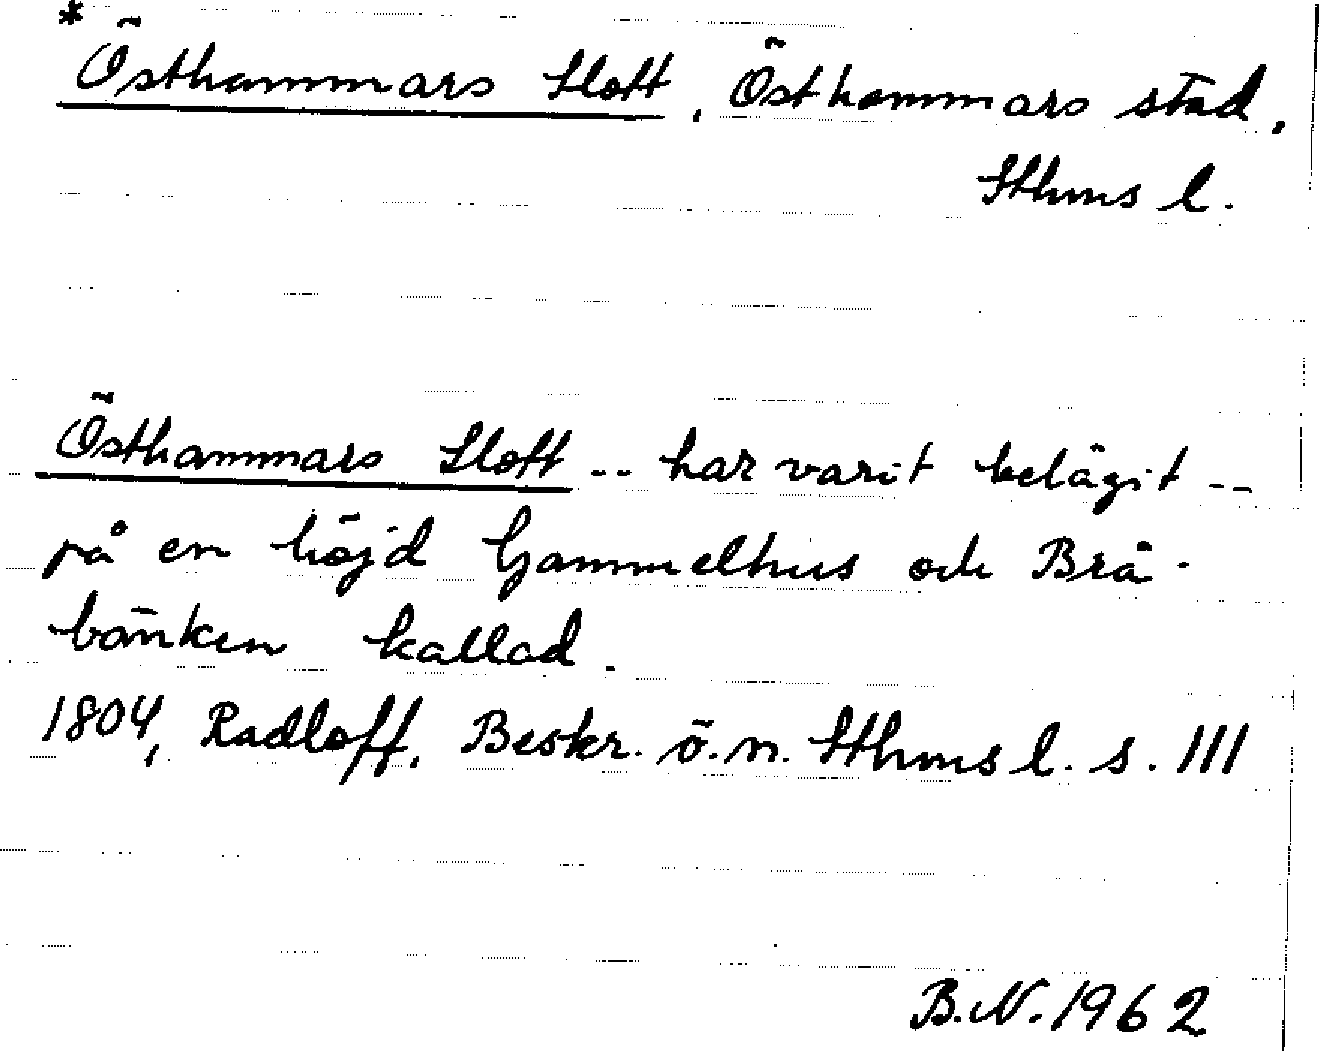 * Östhammars Slott, Östhammars stad,
Sthms l.
Östhammars Slott -- har varit belägit --
på en höjd Gammelhus och Brä-
bänken kallad.
1804, Radloff, Beskr. ö. n. Sthms l. s. 111
B.N. 1962